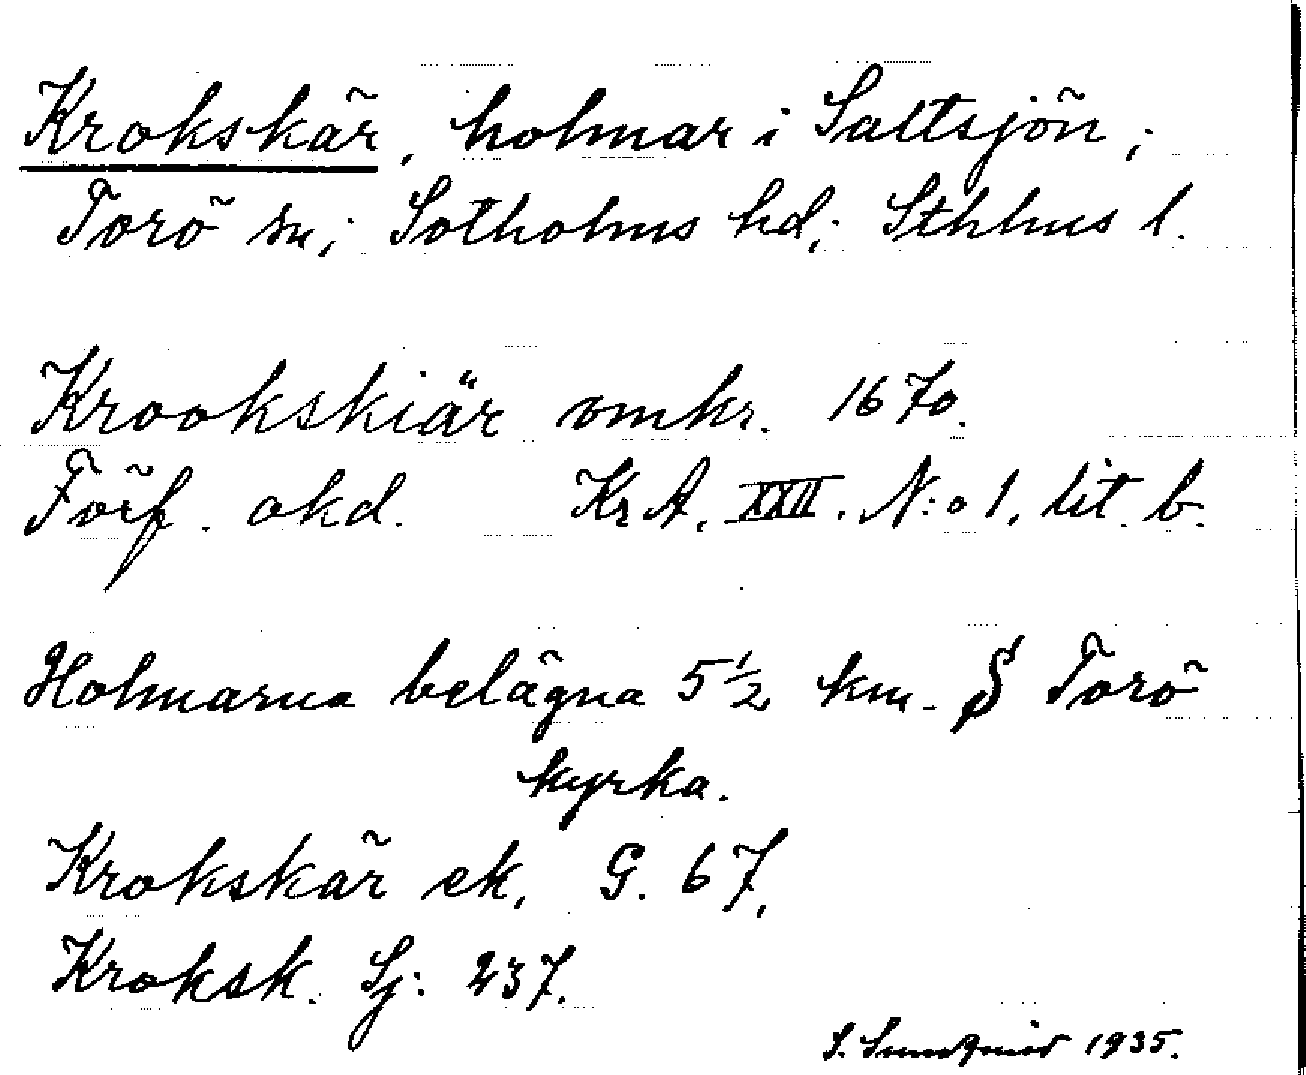 Krokskär, holmar i Saltsjön;
Torö sn; Sotholms hd; Sthlms l.
Krookskiär omkr. 1670.
Förf. okd. Kr A. XXII. N:o 1. lit. b.
Holmarna belägna 5 1/2 km. S Torö
kyrka.
Krokskär ek. G. 67.
Kroksk. Sj: 237.
S. Sundqvist 1935.